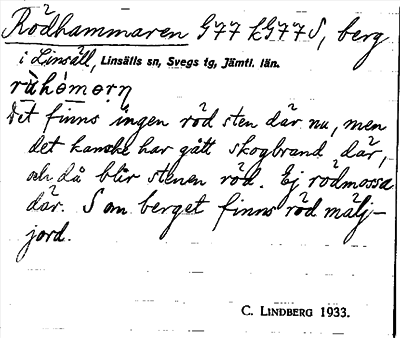 Rödhammaren G77 kG77S, berg
i Linsäll, Linsälls sn, Svegs tg, Jämtl. län.
rùhómorn
Det finns ingen röd sten där nu, men
det kanske har gått skogbrand där,
och då blir stenen röd. Ej rödmossa
där. S om berget finns röd mälj-
jord.
C. LINDBERG 1933.